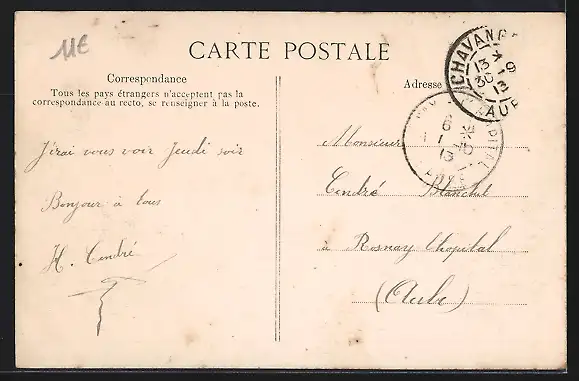 11E
CARTE POSTALE
Correspondance
Tous les pays étrangers n'acceptent pas la
correspondance au recto, se renseigner à la poste.
Adresse
CHAVANGES
AUBE
J'irai vous voir Jeudi soir
Bonjour à tous
H. Cendré
Monsieur
Cendré Blanchet
à Rosnay l'hopital
(Aube)